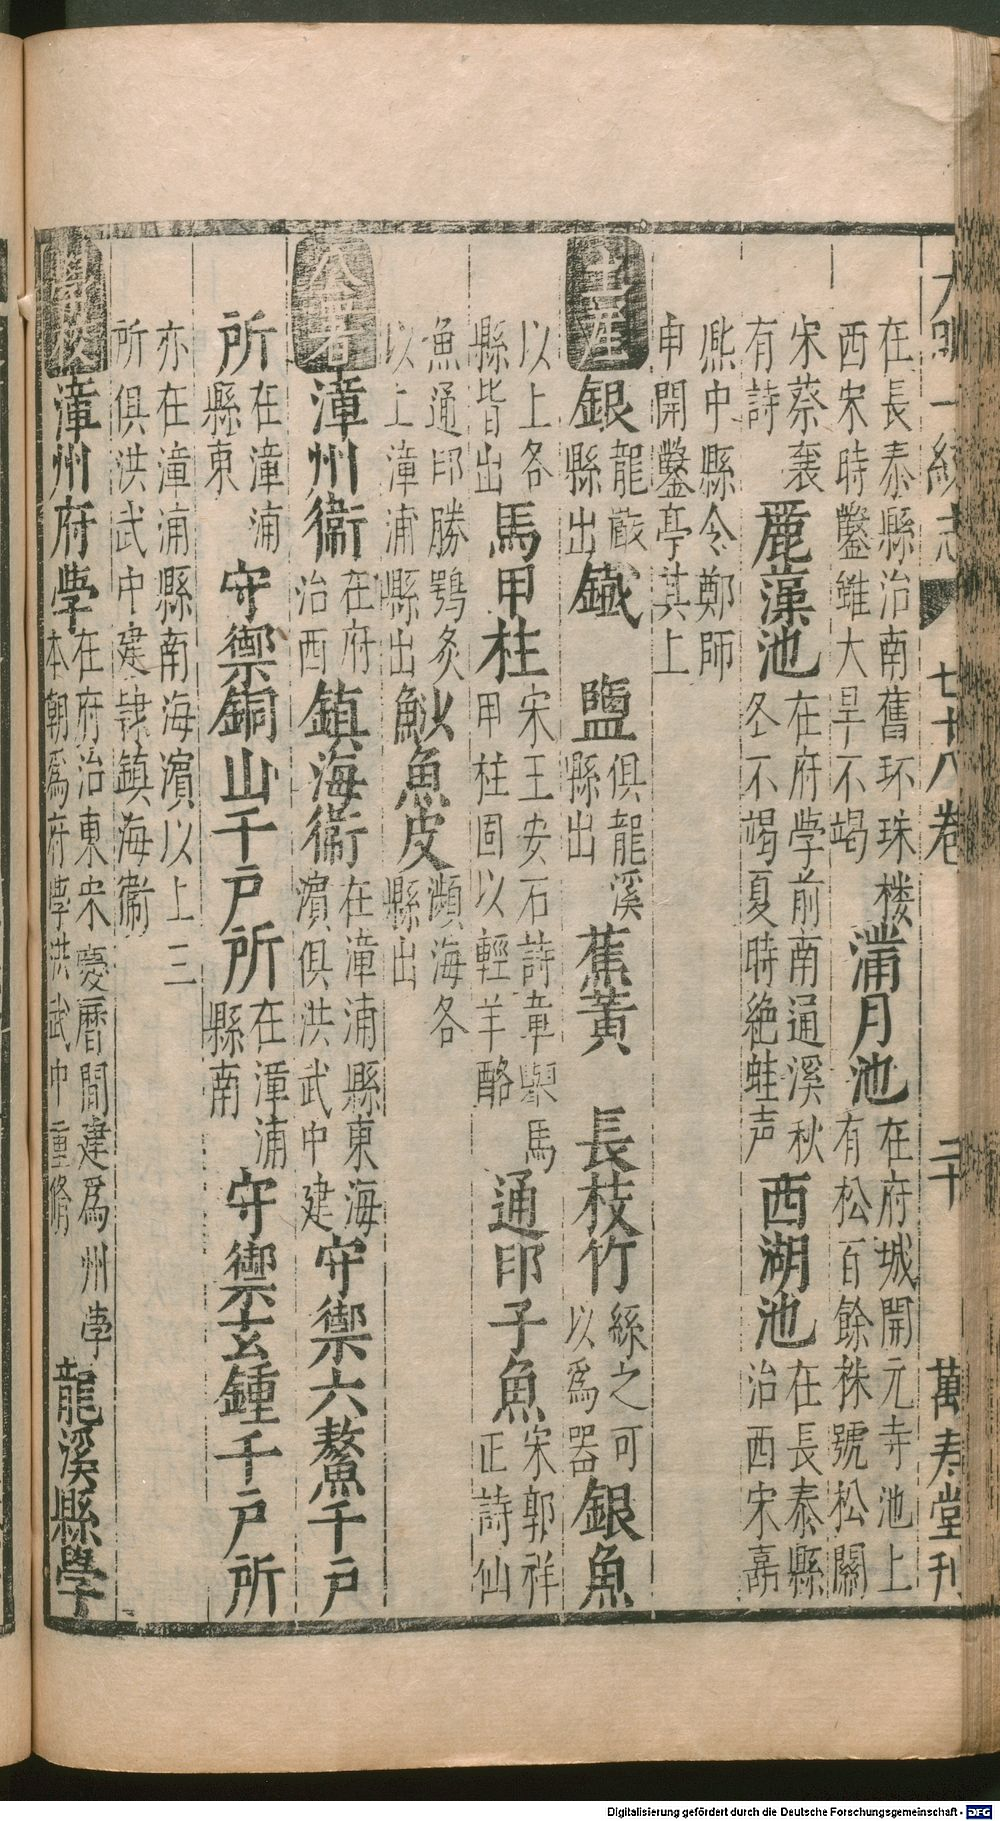 大明一統志 七十八卷 二十 萬壽堂刊
在長泰縣治南舊环珠楼
西宋時鑿雖大旱不竭
滿月池
在府城開元寺池上
有松百餘株號松關
宋蔡襄
有詩
麗藻池
在府学前南通溪秋
冬不竭夏時絶蛙声
西湖池
在長泰縣
治西宋嘉
熈中縣令鄭師
申開鑿亭其上
土産
銀
龍巖
縣出
鐵 鹽
俱龍溪
縣出
蕉黃 長枝竹
絲之可
以爲器
銀魚
以上各
縣皆出
馬甲柱
宋王安石詩章舉馬
甲柱固以輕羊酪
通印子魚
宋郭祥
正詩仙
魚通印勝鴞炙
以上漳浦縣出
魚皮
瀕海各
縣出
公署
漳州衛
在府
治西
鎮海衛
在漳浦縣東海
濵俱洪武中建
守禦六鰲千戶
所
在漳浦
縣東
守禦銅山千戶所
在漳浦
縣南
守禦玄鍾千戶所
亦在漳浦縣南海濵以上三
所俱洪武中建隷鎮海衛
學校
漳州府学
在府治東宋慶曆間建爲州学
本朝爲府學洪武中重脩
龍溪縣學
Digitalisierung gefördert durch die Deutsche Forschungsgemeinschaft - DFG